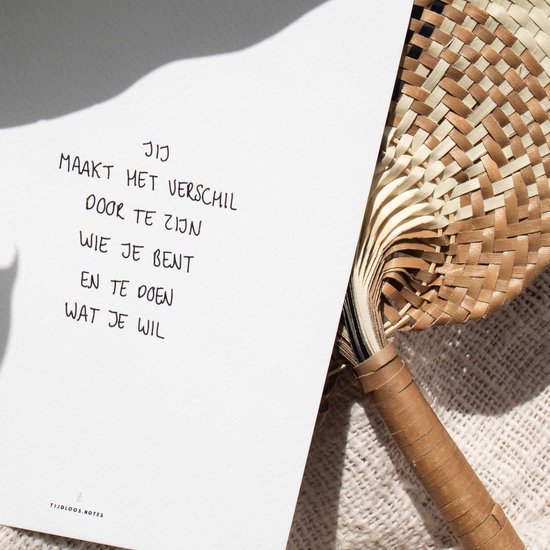 JIJ
MAAKT HET VERSCHIL
DOOR TE ZIJN
WIE JE BENT
EN TE DOEN
WAT JE WIL
TIJDLOOS.NOTES